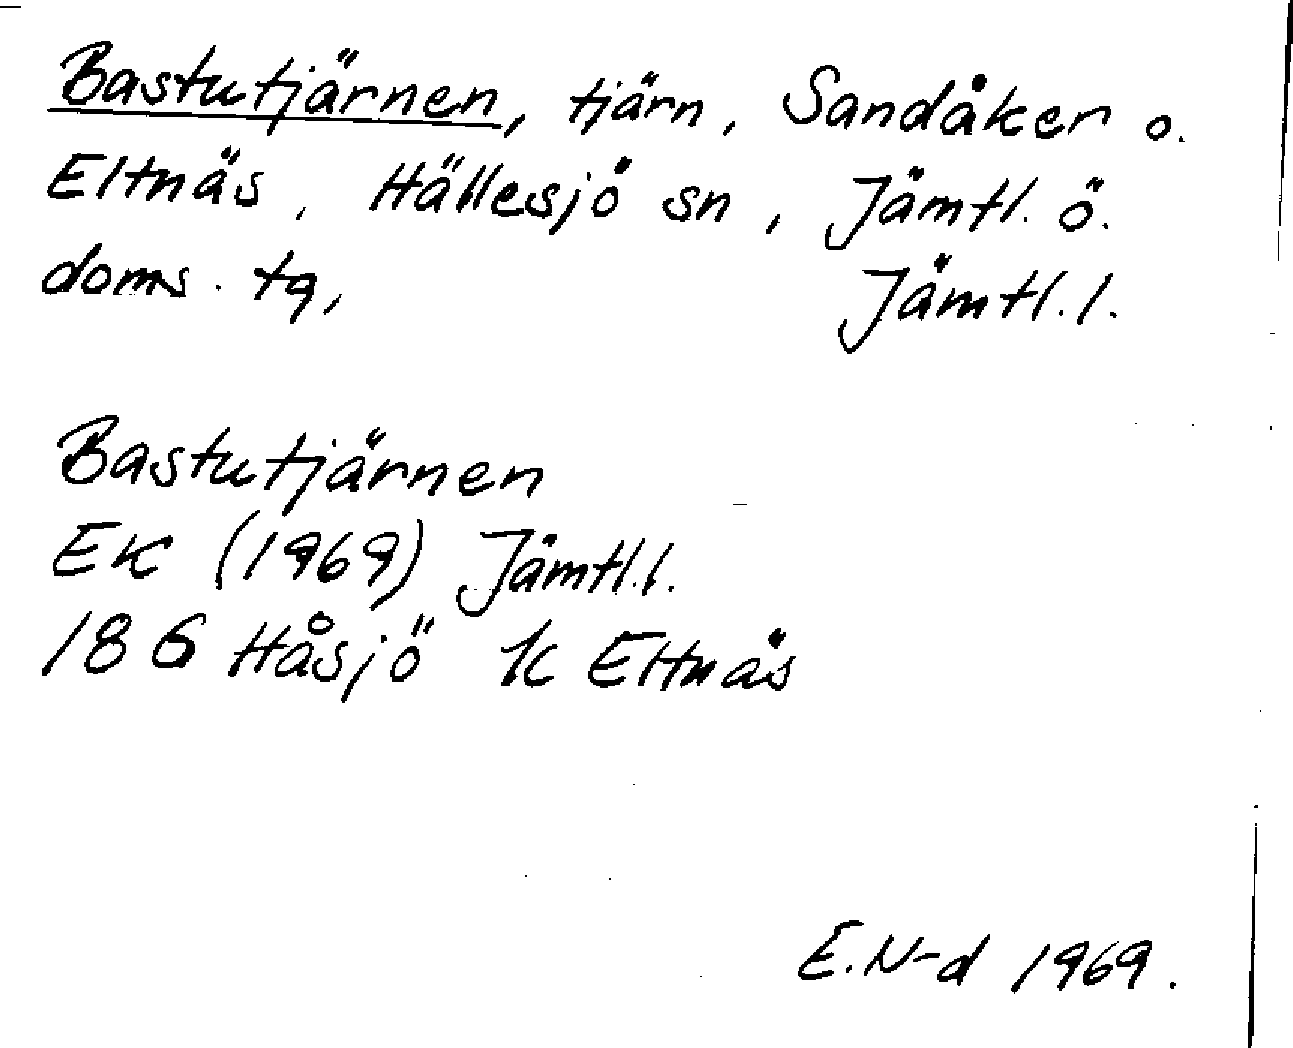 Bastutjärnen, tjärn, Sandåker o.
Eltnäs, Hällesjö sn, Jämtl. ö.
doms. tg, Jämtl. l.
Bastutjärnen
EK (1969) Jämtl. l.
186 Håsjö k Eltnäs
E. N-d 1969.